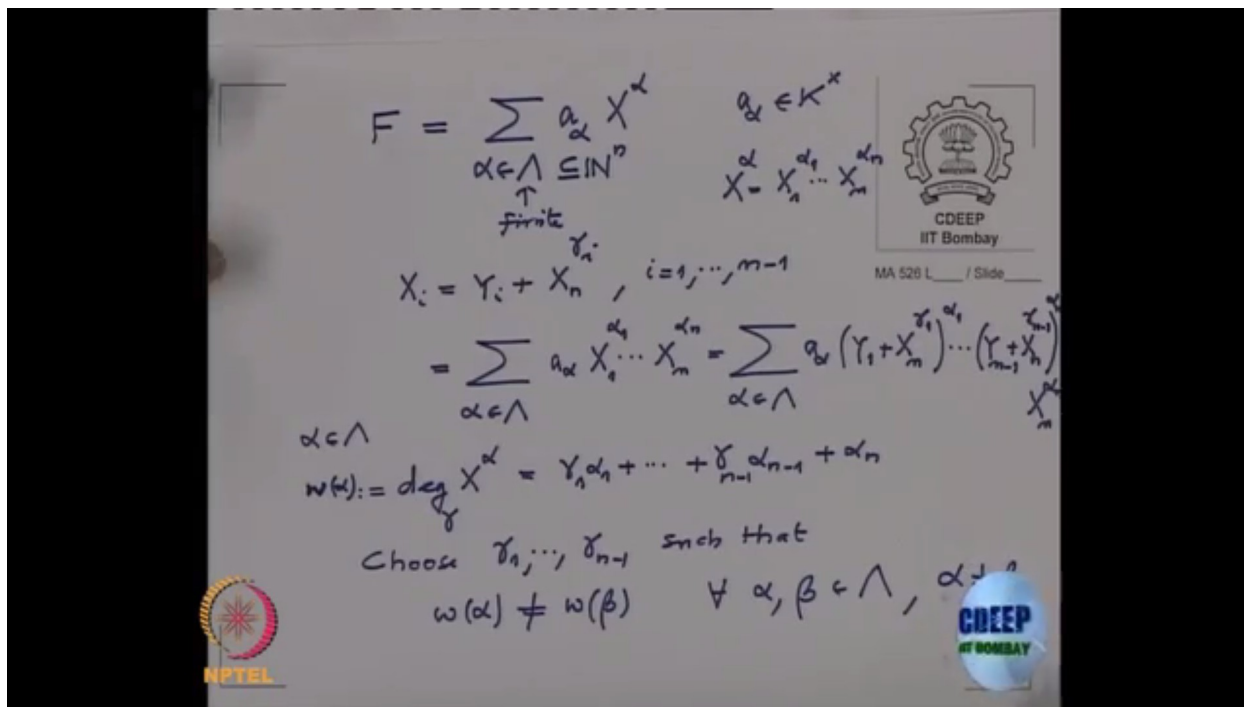 F = ∑ a_α X^α    a_α ∈ K^×
α ∈ Λ ⊆ ℕ^n    X^α = X_1^{α_1} ⋯ X_n^{α_n}
↑
finite
CDEEP
IIT Bombay
MA 526 L____ / Slide____
X_i = Y_i + X_n^{γ_i}, i=1,⋯,n-1
= ∑_{α∈Λ} a_α X_1^{α_1} ⋯ X_n^{α_n} = ∑_{α∈Λ} a_α (Y_1 + X_n^{γ_1})^{α_1} ⋯ (Y_{n-1} + X_n^{γ_{n-1}})^α
X_n^α
α ∈ Λ
w(α) := deg_γ X^α = γ_1 α_1 + ⋯ + γ_{n-1} α_{n-1} + α_n
Choose γ_1, ⋯, γ_{n-1} such that
w(α) ≠ w(β)    ∀ α, β ∈ Λ, α ≠ β
NPTEL
CDEEP
IIT BOMBAY